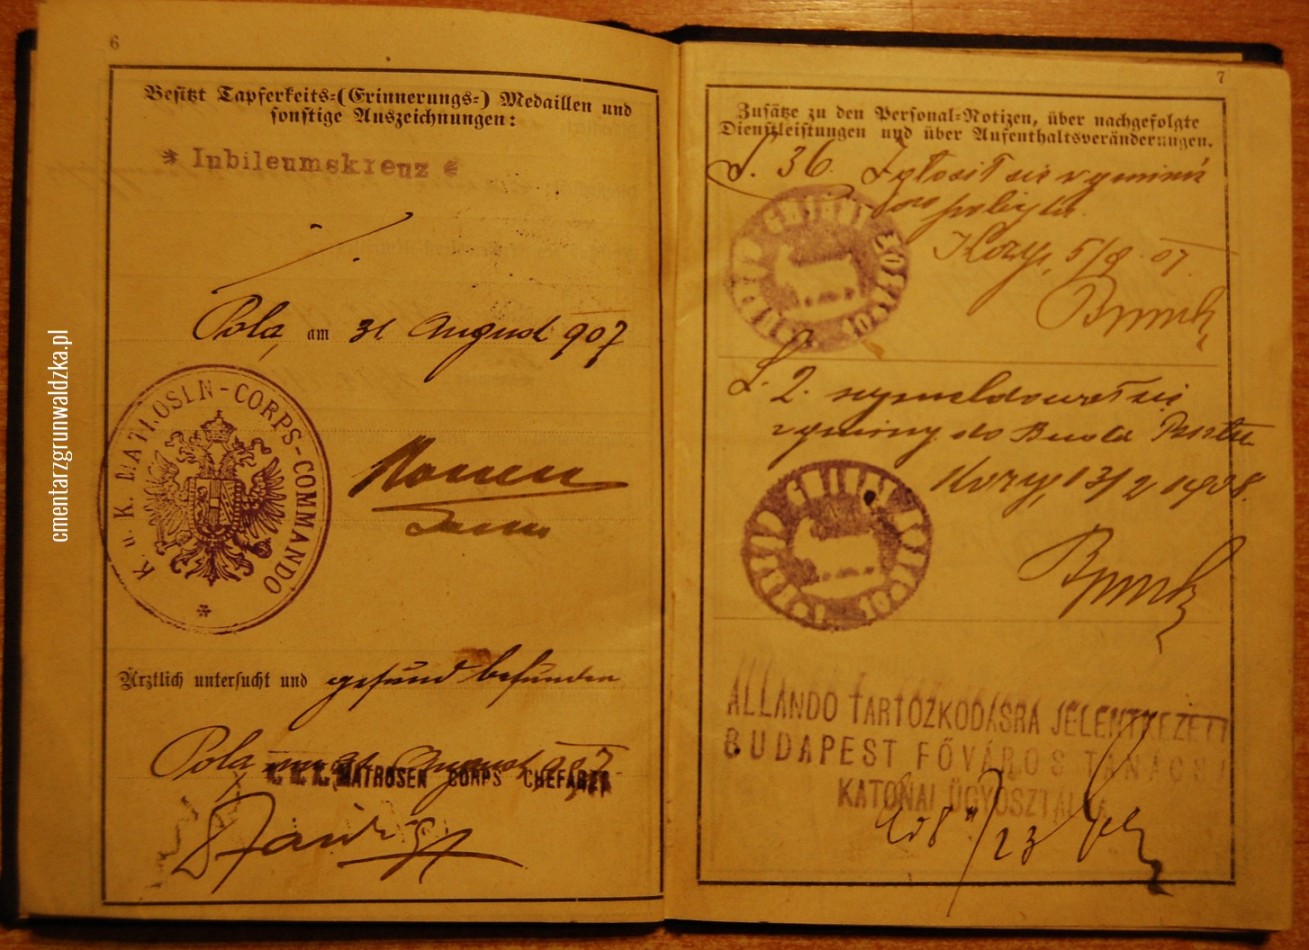 6
Besitzt Tapferkeits-(Erinnerungs-) Medaillen und
sonstige Auszeichnungen:
* Iubileumskreuz *
Pola, am 31 August 907
K. u. K. MATROSEN-CORPS-COMMANDO
Ärztlich untersucht und gesund befunden
Pola am 31 August 907
K. u. K. MATROSEN CORPS CHEFARZT
cmentarzgrunwaldzka.pl
7
Zusätze zu den Personal-Notizen, über nachgefolgte
Dienstleistungen und über Aufenthaltsveränderungen.
L. 36. Zgłosił się w gminie
do pobytu
Kozy, 5/9 07.
L. 2. wymeldował się
z gminy do Buda Pesztu
Kozy, 13/2 1908.
ÁLLANDÓ TARTÓZKODÁSRA JELENTKEZETT
BUDAPEST FŐVÁROS TANÁCSI
KATONAI ÜGYOSZTÁLYA
23